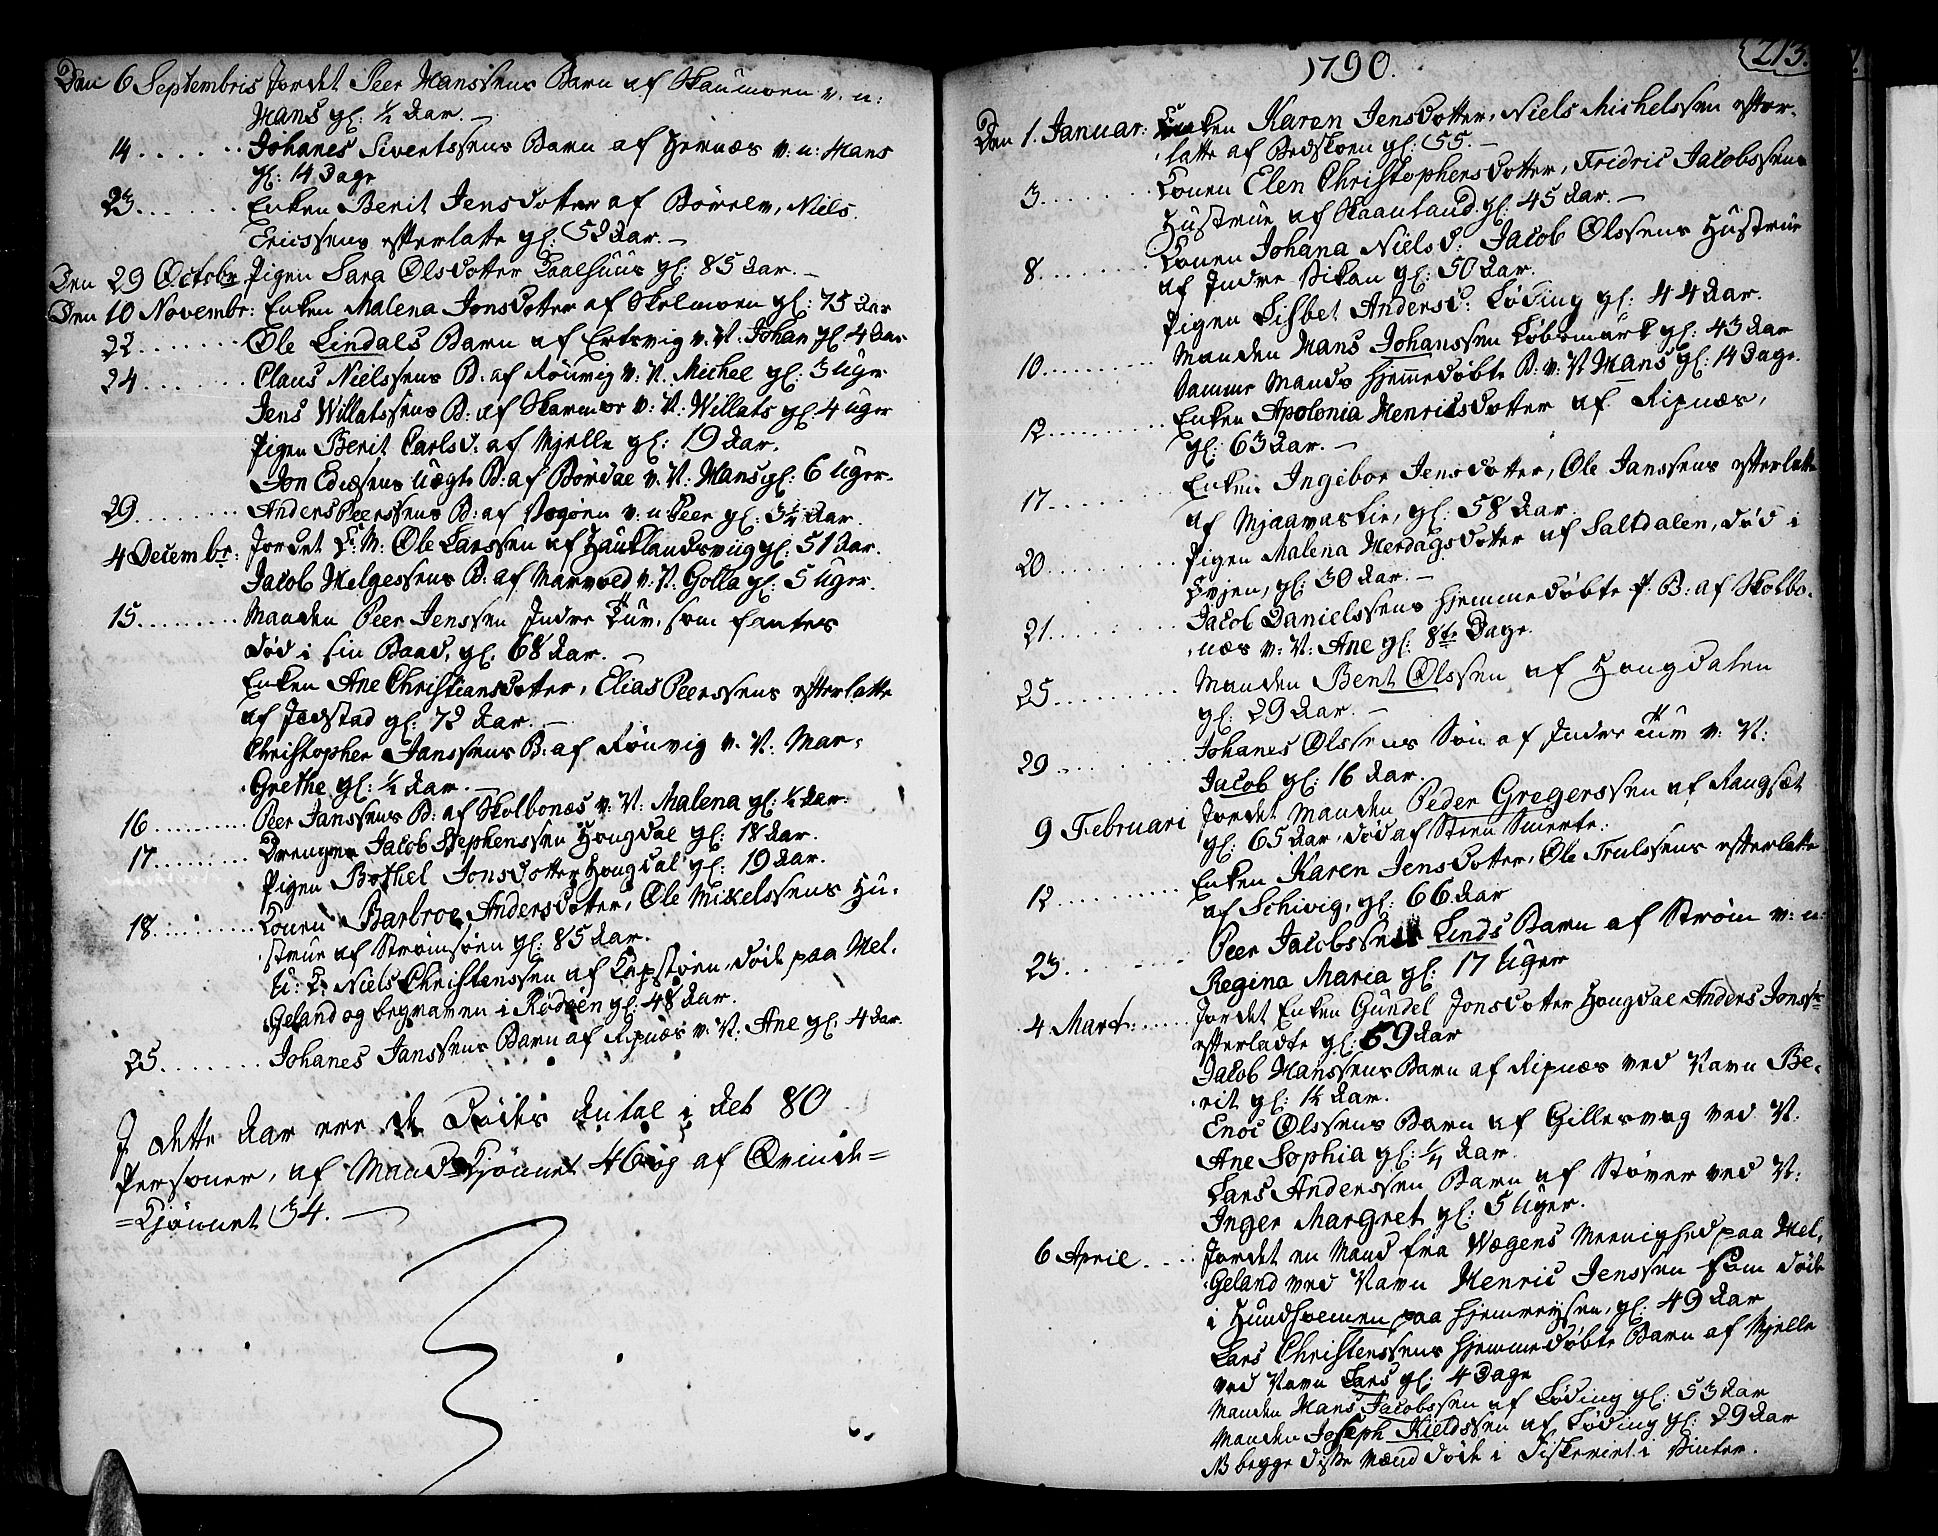 Den 6 Septembris Jordet Peer Hanssens Barn af Skaumoen v. n:
Hans gl: ½ Aar. –
14. Johanes Sivertssens Barn af Hernæs v. n: Hans
gl: 14 Dage
23. Enken Berit Jensdotter af Börelv, Niels
Ericssens efterlatte gl: 52 Aar. –
Den 29 Octobr. Pigen Sara Olsdotter Kaalhuus gl: 85 Aar. –
Den 10 Novembr: Enken Malena Jonsdotter af Skelmoen gl: 75 Aar
22. Ole Lindals Barn af Ertsvig v: N: Johan gl 4 Aar
24. Claus Nielssens B: af Rönvig v: N. Michel gl: 3 Uger
Jens Willatssens B: af Skarmoe v: N: Willats gl: 4 Uger
Pigen Berit Carlsd: af Mjelle gl: 19 Aar.
Jon Ediæsens Uægte B: af Bördae v. N: Hans gl: 6 Uger.
29. Anders Peerssens B: af Vogöen v: n: Peer gl: 3¼ Aar.
4 Decembr: Jordet E: M: Ole Larssen af Hauklandsviig gl: 51 Aar.
Jacob Helgessens B: af Marvoed v: N. Golla gl: 5 Uger.
15. Manden Peer Jenssen Indre Tuv, som fantes
död i sin Baad, gl. 68 Aar. –
Enken Ane Christiansdotter, Elias Peerssens efterlatte
af Jodstad gl: 72 Aar. –
Christopher Janssens B: af Rönvig v. N: Mar-
Grethe gl: ½ Aar. –
16. Peer Janssens B: af Skolbonæs v: N: Malena gl: ¼ Aar.
17. Drengen Jacob Stephenssen Hougdal gl: 18 Aar.
Pigen Bothel Jonsdotter Hougdal gl: 19 Aar.
18. Konen Barbroe Andersdotter, Ole Mikelssens Hu-
strue af Strömsöen gl: 85 Aar.
U: K: Niels Christenssen af Kopstöen, döde paa Hel-
Geland og begraven i Rödöen gl: 48 Aar.
25. Johanes Janssens Barn af Ripnæs v: N: Ane gl: 4 Aar.
I dette Aar ere de Dödes Antal i Alt 80
Personer, af Mandkjönnet 46 og af Qvinde=
=Kjönnet 34. –
213.
1790.
Den 1. Januar: Enken Karen Jensdotter, Niels Michelssen efter-
latte af Bodskoen gl: 55. –
3. Konen Elen Christophersdotter, Fridric Jacobssens
Hustrue af Skaanland gl: 45 Aar. –
8. Konen Johana Nielsd: Jacob Olssens Hustrue
af Indre Vikan gl: 50 Aar.
Pigen Lisbet Andersd: Löding gl: 44 Aar.
10. Manden Hans Johanssen Löbsmark gl: 43 Aar
Samme Mands hjemmedöbte B: v: N Hans gl: 14 Dage.
12. Enken Apolonia Henricsdotter af Ripnæs,
gl: 63 Aar. –
17. Enken Ingebor Jensdotter, Ole Janssens efterlatte
af Mjaavastie, gl: 58 Aar.
20. Pigen Malena Herdagsdotter af Saltdalen, död i
Evjen, gl: 30 Aar. –
21. Jacob Danielssens hjemmedöbte P. B: af Skolbo-
næs v: N: Ane gl: 8te Dage.
25. Manden Bent Olssen af Hougdalen
gl: 29 Aar. –
29. Johanes Olssens Sön af Indre Tuv v: N:
Jacob gl: 16 Aar.
9 Februari Jordet Manden Peder Gregerssen af Rangsæt
gl: 65 Aar, död af Steen Smerte.
12. Enken Karen Jensdotter, Ole Trulssens efterlatte
af Schivig, gl: 66 Aar
23. Peer Jacobssens Linds Barn af Ström v: n:
Regina Maria gl: 17 Uger
4 Mart: Jordet Enken Gundel Jonsdotter Hougdal Anders Jonss:
efterladte gl: 69 Aar
Jacob Hanssens Barn af Ripnæs ved Navn Be-
rit gl: 1½ Aar.
Enoc Olssens Barn af Gillesvog ved N:
Ane Sophia gl: ¼ Aar.
Lars Anderssen Barn af Stöver ved N:
Inger Margret gl: 5 Uger.
6 April Jordet en Mand fra Vægens Menighed paa Hel-
Geland ved Navn Henric Jenssen som döde
i Hundholmen paa hjemreysen, gl: 49 Aar
Lars Christenssens hjemmedöbte Barn af Mjelle
ved Navn Lars gl: 4 Dage
Manden Hans Jacobssen af Löding gl: 53 Aar
Manden Joseph Kieldssen af Löding gl: 29 Aar
NB begge disse Mænd döde i Fiskeriet i Vinter.